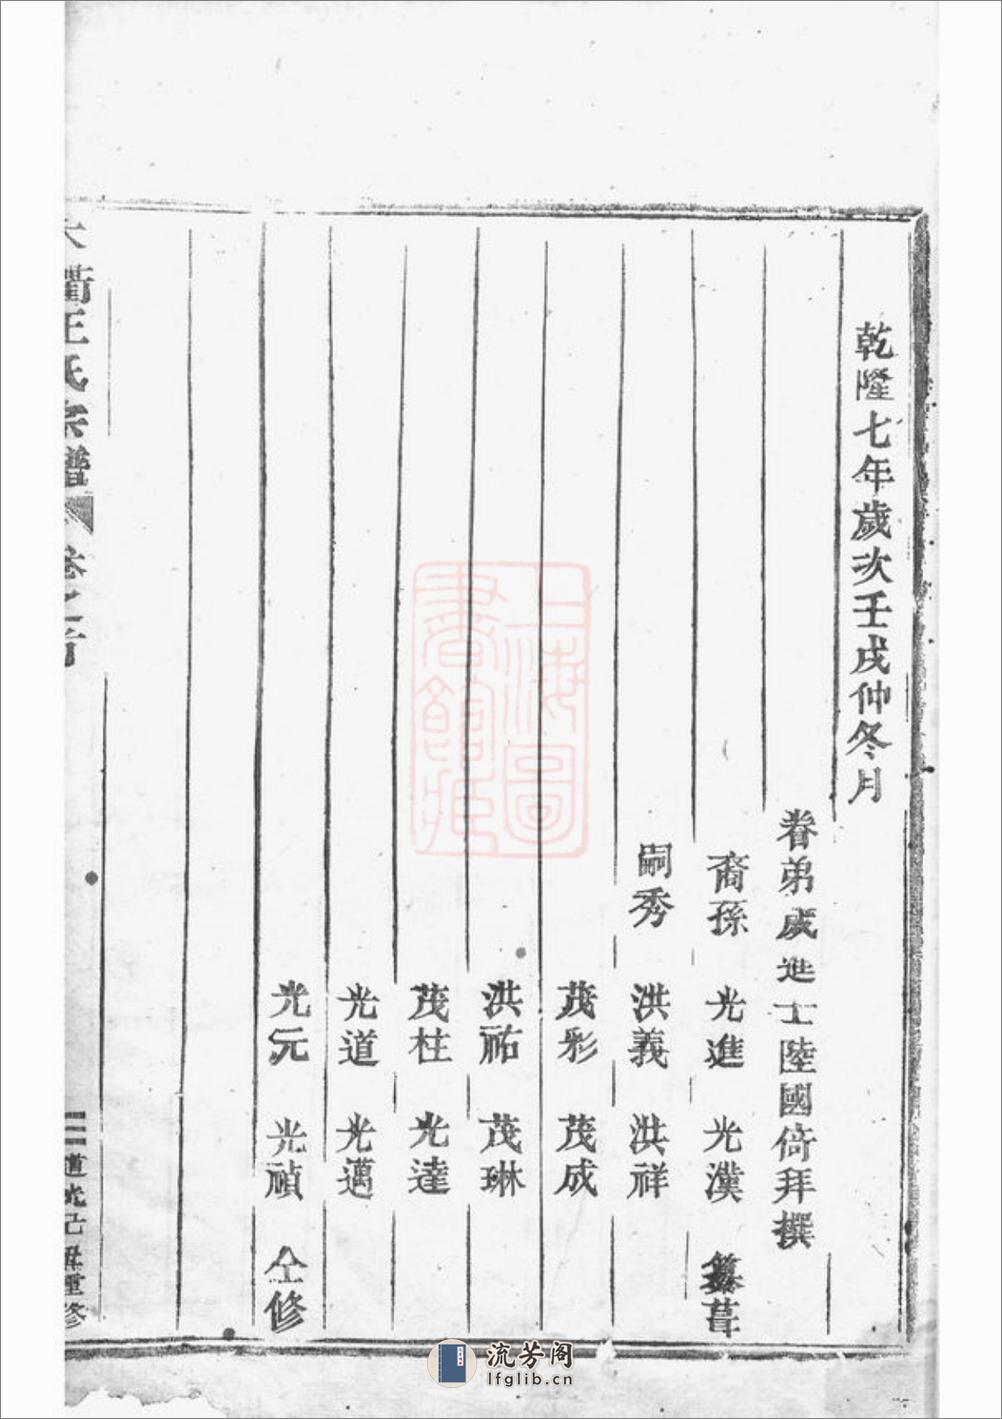 乾隆七年歲次壬戌仲冬月
眷弟歲進士陸國倚拜撰
裔孫 光進 光漢 纂葺
嗣秀 洪義 洪祥
茂彩 茂成
洪祐 茂琳
茂柱 光達
光道 光邁
光元 光禎 仝修
大衢王氏宗譜 卷之首 二 道光己丑重修
上海圖書館藏
流芳阁
lfglib.cn